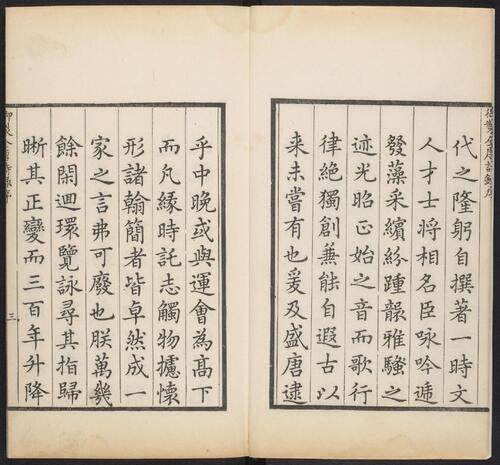 代之隆躬自撰著一時文
人才士將相名臣咏吟遞
發藻采繽紛踵韻雅騷之
迹光昭正始之音而歌行
律絕獨創兼能自遐古以
來未嘗有也爰及盛唐逮
乎中晚或與運會為高下
而凡緣時託志觸物攄懷
形諸翰簡者皆卓然成一
家之言弗可廢也朕萬幾
餘閑迴環覽詠尋其指歸
晰其正變而三百年升降
三